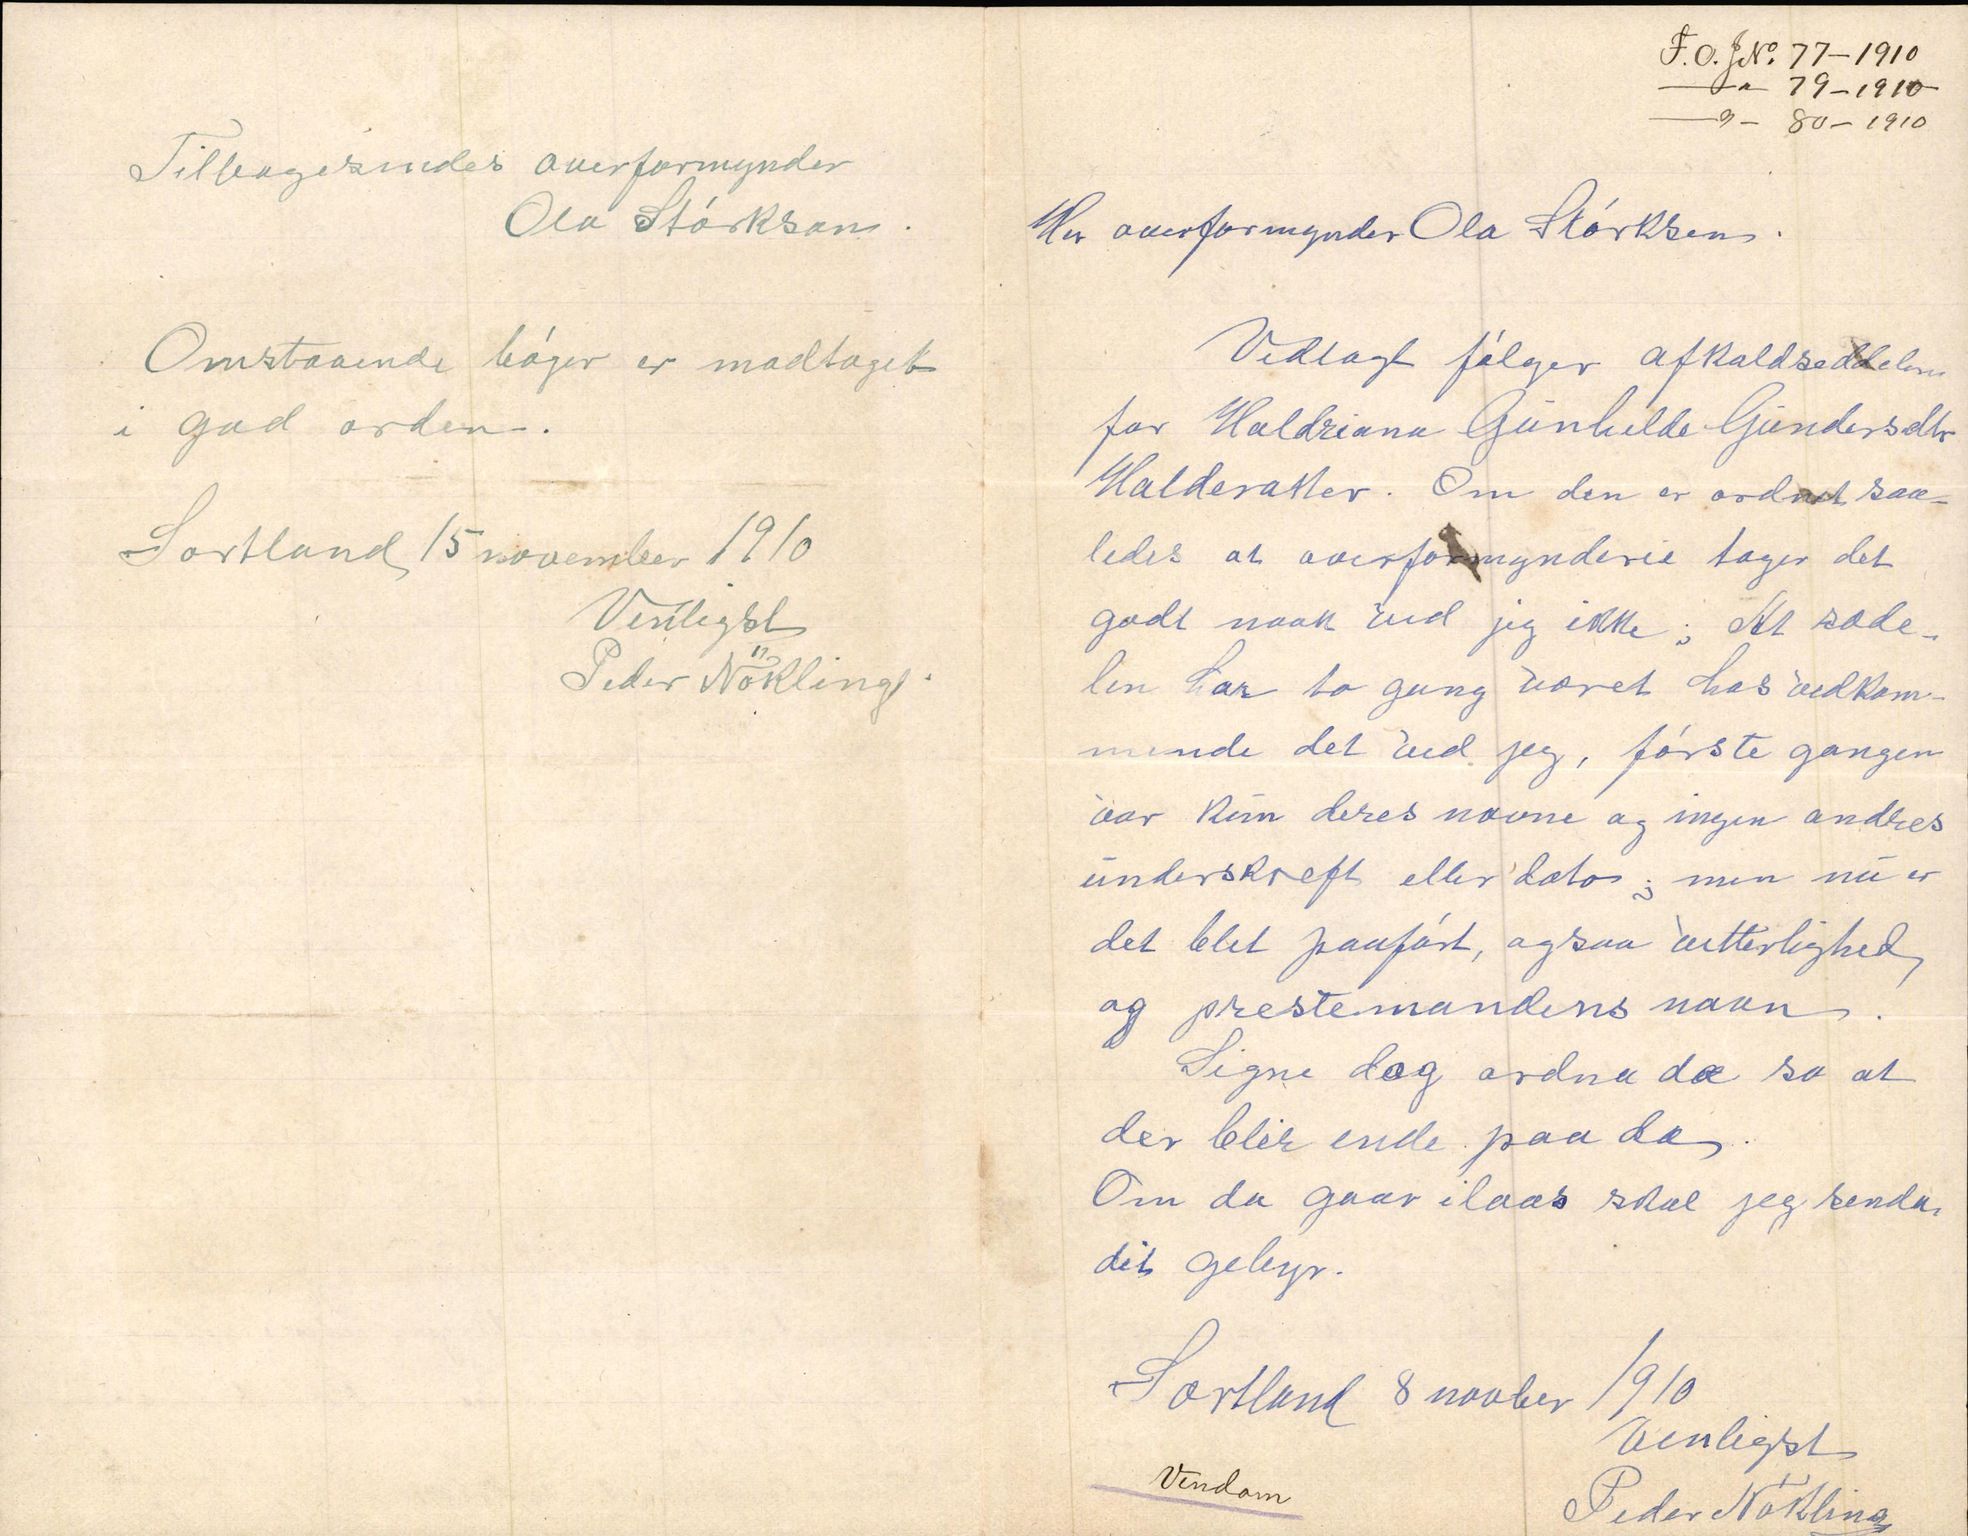 Tilbagesendes overformynder
Ola Störksen.
Omstaaende böger er modtaget
i god orden.
Sortland, 15 november 1910
Venligst
Peder Nökling.
F.O.J.No. 77-1910
—"— 79-1910
—"— 80-1910
Her overformynder Ola Störksen.
Vedlagt fölger afkaldseddelen
for Haldriana Gunhilde Gundersdtr
Holderaker. Om den er ordnet saa-
ledes at overformynderie tager det
godt nook ved jeg ikke; At sede-
len har to gang været hos vedkom-
mende det ved jeg, förste gangen
var kun deres navne og ingen andres
underskreft eller dato; men nu er
det blet paafört, ogsaa vetterlighed,
og prestemandens navn.
Signe dog ordna dæ so at
der blir ende paa dæ.
Om da gaar ilaas skal jeg senda
dit gebyr.
Sortland 8 november 1910
Venligst
Peder Nökling
Vendom